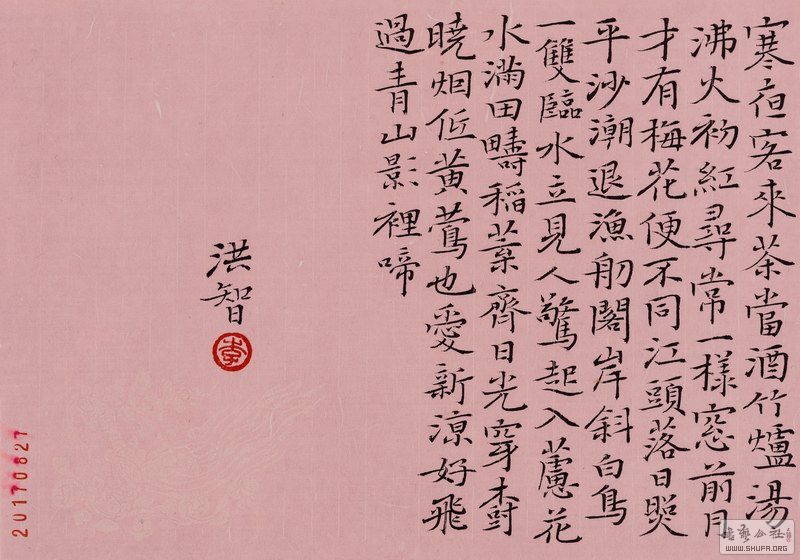 寒夜客來茶當酒竹爐湯
沸火初紅尋常一樣窓前月
才有梅花便不同江頭落日照
平沙潮退漁舠閣岸斜白鳥
一雙臨水立見人驚起入蘆花
水滿田疇稻葉齊日光穿樹
曉烟低黃鶯也愛新涼好飛
過青山影裡啼
洪智
李
20170827
書藝公社
WWW.SHUFA.ORG